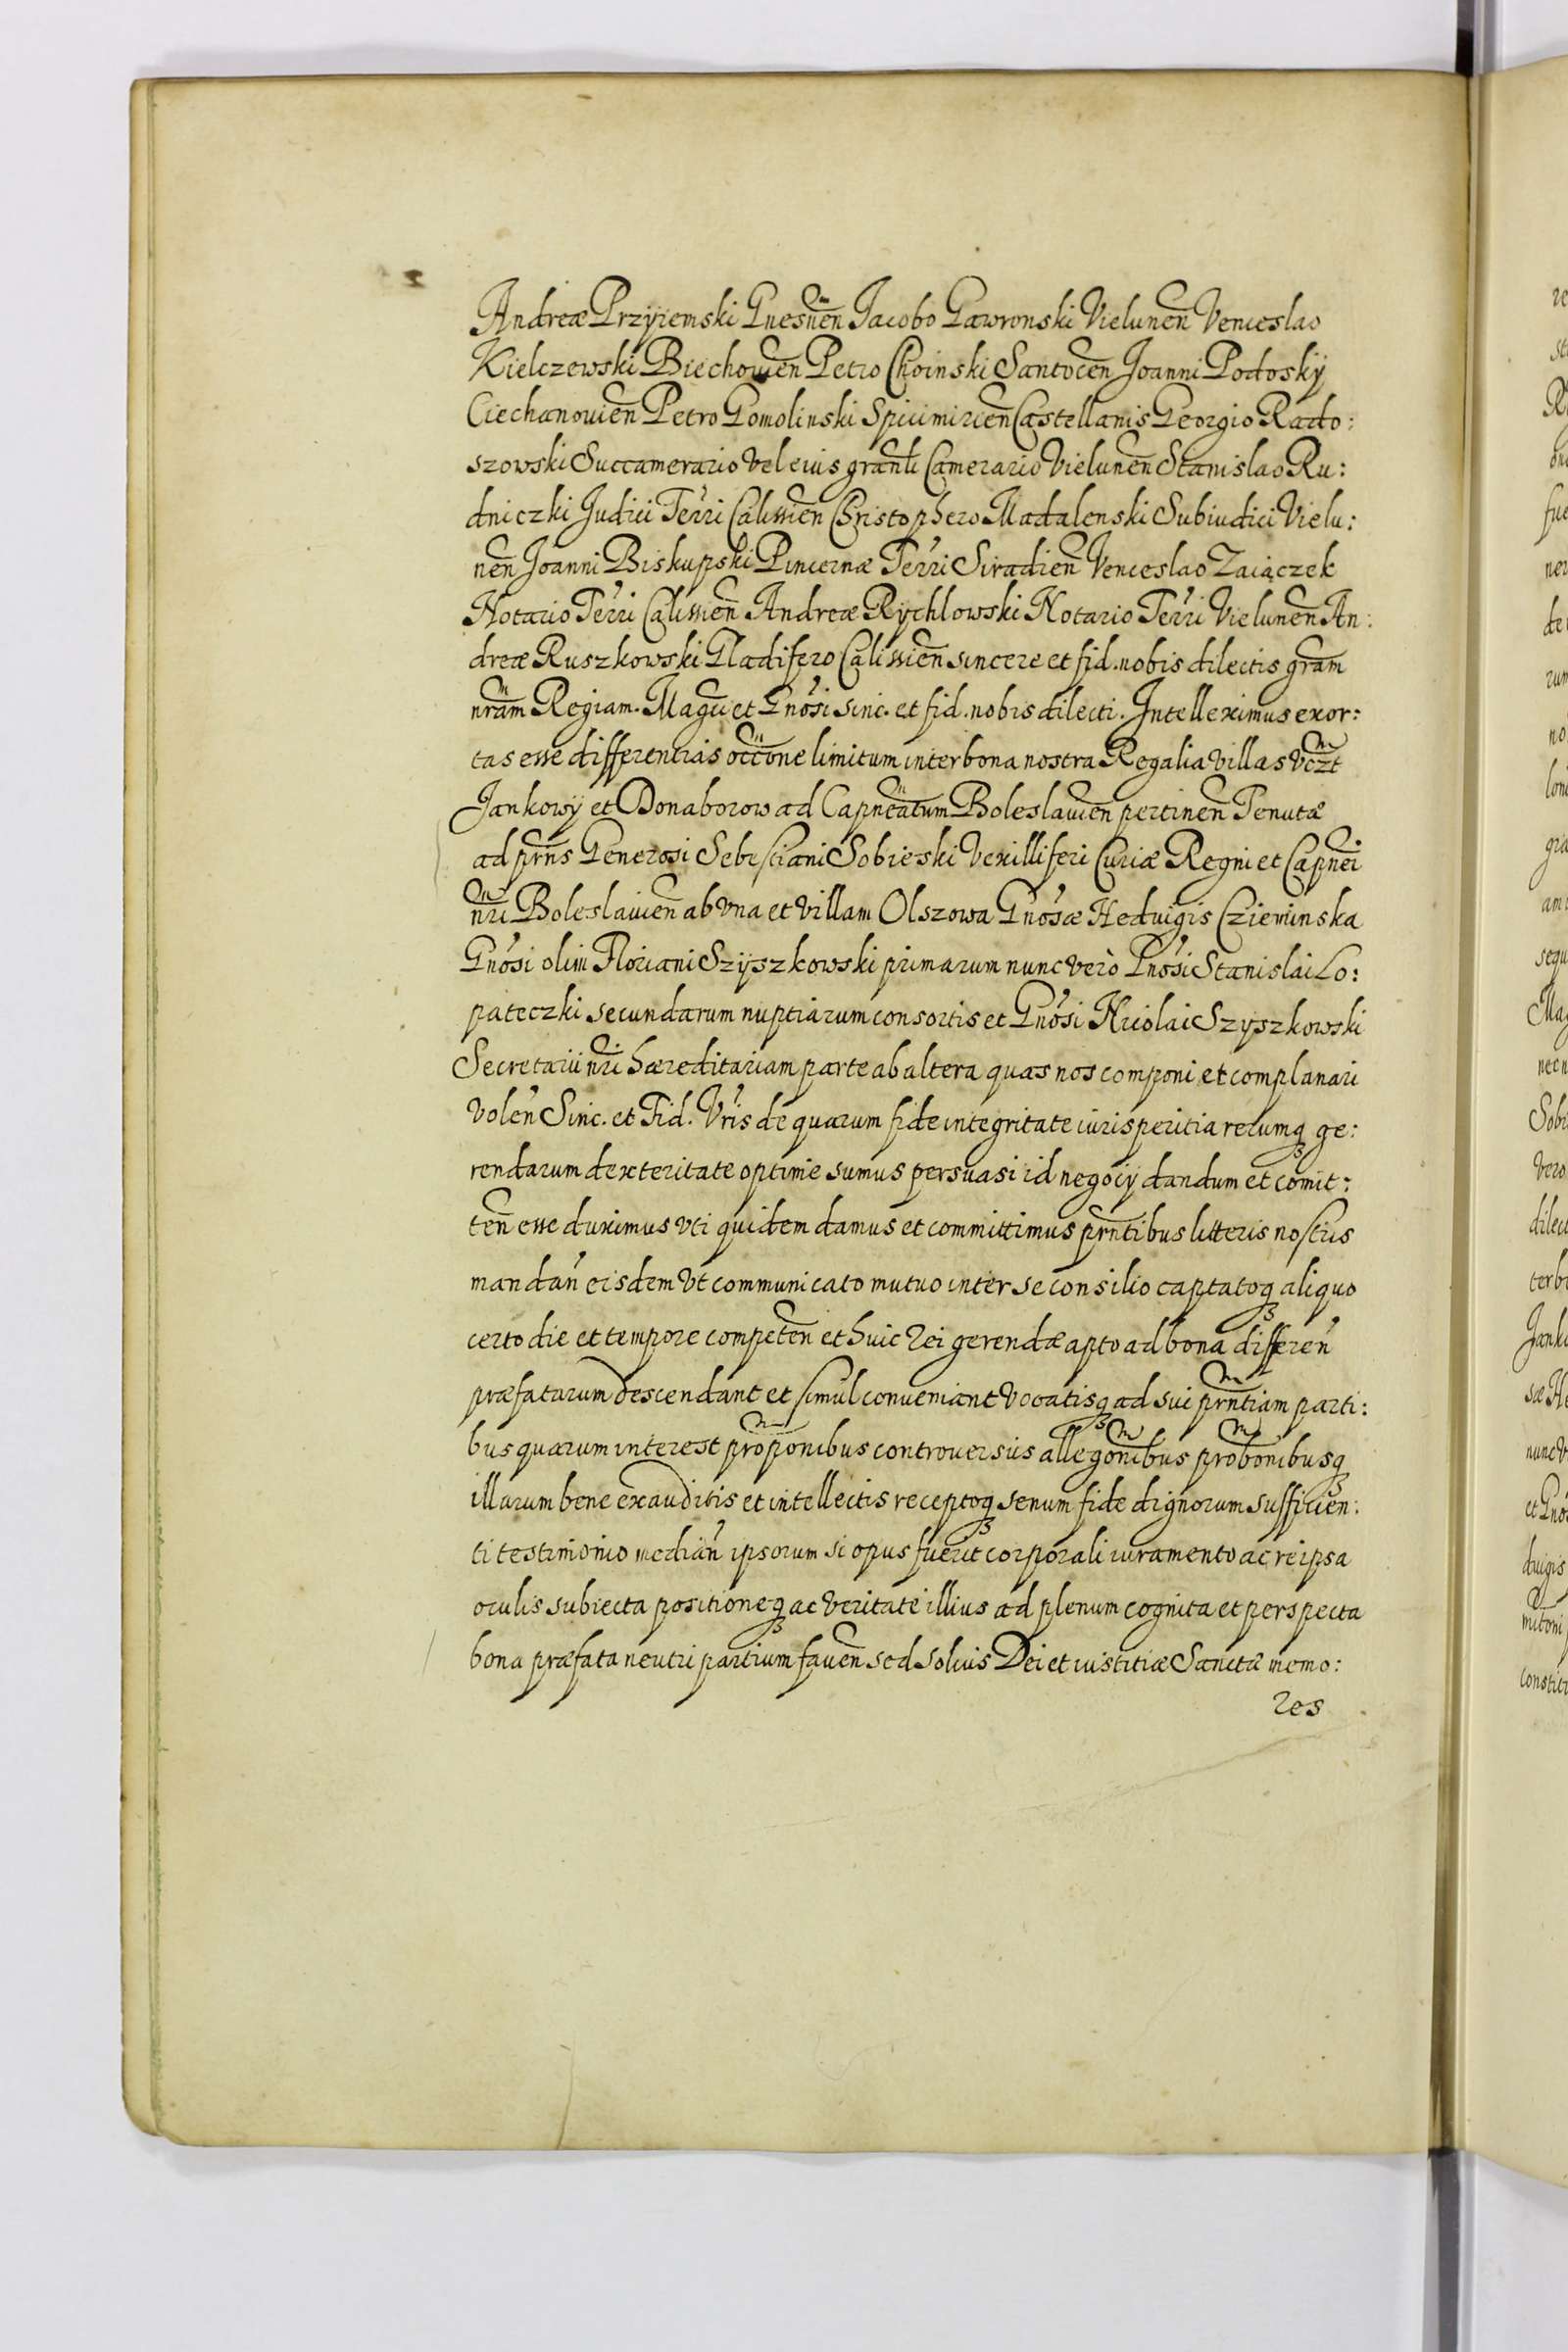 Andreæ Przyiemski Gnesnen Iacobo Gawronski Vielunen Venceslao
Kielczewski Biechovien Petro Choinski Santocen Joanni Podosky
Ciechanovien Petro Gomolinski Spicimirien Castellanis Georgio Rado:
szowski Succamerario vel eius granli Camerario Vielunen Stanislao Ru:
dniczki Judici Terri Calissien Christophero Madalenski Subiudici Vielu:
nen Joanni Biskupski Pincernæ Terri Siradien Venceslao Zaiączek
Notario Terri Calissien Andreæ Rychlowski Notario Terri Vielunen An:
dreæ Ruszkowski Gladifero Calissien sincere et fid. nobis dilectis gram
nram Regiam. Magci et Gnosi sinc. et fid. nobis dilecti. Intelleximus exor:
tas esse differentias occone limitum inter bona nostra Regalia villas vczt
Jankowy et Donaborow ad Capneatum Boleslavien pertinen Tenutæ
ad prns Generosi Sebestiani Sobieski Vexilliferi Curiæ Regni et Capnei
nri Boleslavien ab vna et villam Olszowa Gnosæ Hedvigis Czieminska
Gnosi olim Floriani Szyszkowski primarum nunc verò Gnosi Stanislai Lo:
pateczki secundarum nuptiarum consortis et Gnosi Nicolai Szyszkowski
Secretarii nri hæreditariam parte ab altera quas nos componi et complanari
volen Sinc. et Fid. Vris de quarum fide integritate iurisperitia rerumq ge:
rendarum dexteritate optime sumus persuasi id negocij dandum et comit:
ten esse duximus vti quidem damus et committimus prntibus litteris nostris
mandan eisdem vt communicato mutuo inter se consilio captatoq aliquo
certo die et tempore competen et huic rei gerendæ apto ad bona differen
præfatarum descendant et simul conveniant vocatisq ad sui prntiam parti:
bus quarum interest proponibus controversiis allegonibus probonibusq
illarum bene exauditis et intellectis receptoq senum fide dignorum sufficien:
ti testimonio median ipsorum si opus fuerit corporali iuramento ac re ipsa
oculis subiecta positioneq ac veritate illius ad plenum cognita et perspecta
bona præfata neutri partium faven sed solius Dei et iustitiæ Sanctæ memo:
res